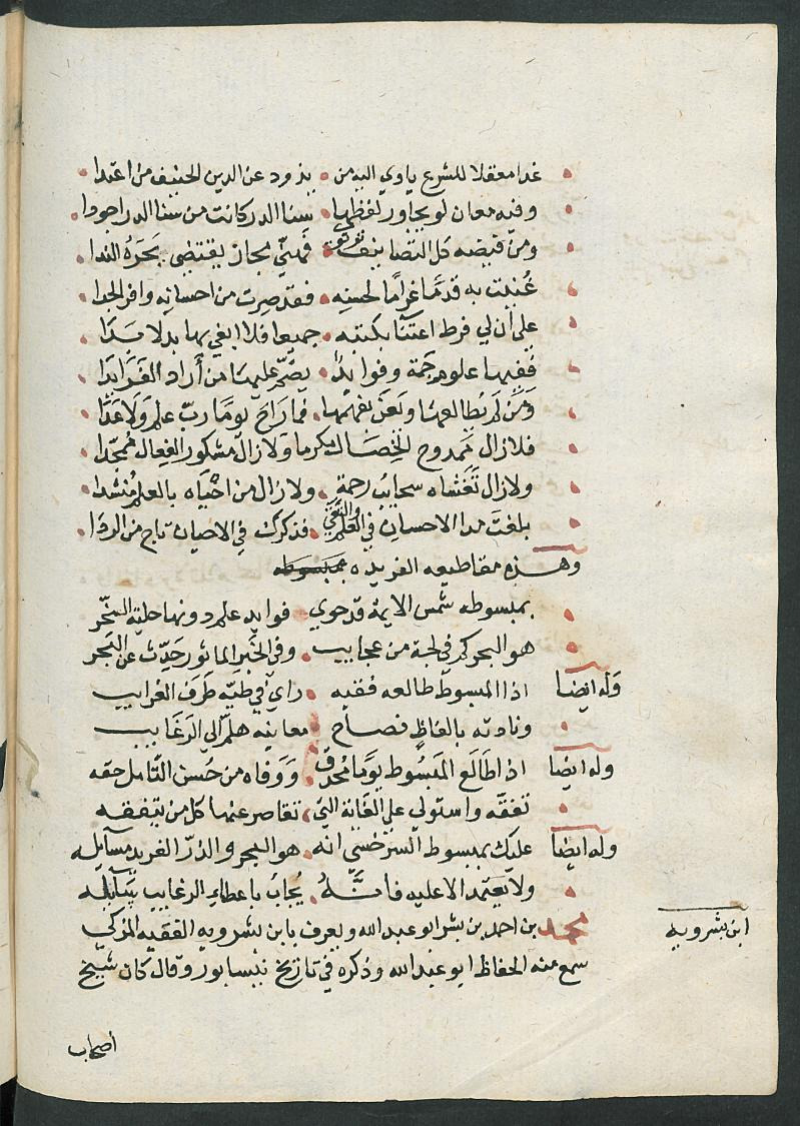 غدا معقلا للشرع ياوي اليه من • يذود عن الدين الحنيف من اعتدا •
وفيه معان لو يجاور لفظها • سنا الدر كانت من سنا الدر اجودا •
ومن فيضه كل التصانيف • فهتي مجاز يقتضي بحره الندا •
عُنيت به قدمًا غرامًا لحسنه • فقد صرت من احسانه وافر الجدا •
على أن لي فرط اعتنا بكتبه • جميعا فلا ابغي بها بدلا بَدَا •
ففيها علوم جمة وفوايد • يضم عليها من أراد الفَرَايدَا •
وَمَن لَم يُطالعها ويُعنَ بفهمها • فما رَاحَ يومًا ربّ علم وَلا غدَا •
فلا زال ممدوح الخصال مكرما ولا زال مشكور الفعال مُمجّدا •
ولا زال تغشاه سحايب رحمة • ولا زال من احياه بالعلم مُنشدا •
بلغت مدا الاحسان في العلم والتقى • فذكرك في الاحيان تاج من الردَا •
وهذه مقاطيعه الفريده بمبسوطه
بمبسوطه شمس الايمة قد حوي • فوايد علم دونها حلية النحر
هو البحر كم في لجة من عجايب • وفي الخبر الماثور حَدِّث عن البحر
وله ايضا اذا المبسوط طالعه فقيه • راي في طيّه طَرَف الغرايب
ونادته بالفاظٍ فصاح • معاينه هلم الي الرَغَايب
وله ايضا اذا طالَع المَبسُوط يومًا مُحرف • وَوَفاه من حُسن التَّامل حقه
تفقّه واستولي على الغاية التي • تقاصر عنها كل من يتفقه
وله ايضا عليك بمبسوط السرخسي انه • هو البحر والدرّ الفريد مسآيله
ولا تعتمد الا عليه فانَّهُ • يُجابُ باعطاءِ الرغايب سآيله
محمد بن احمد بن بشر ابو عبد الله ويعرف بابن بشرويه الفقيه المزكي
ابن بشرويه
سمع منه الحفاظ ابو عبد الله وذكره في تاريخ نيسابور وقال كان شيخ
أصحاب